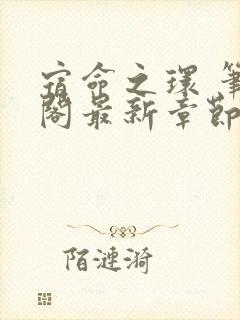 宿命之環 筆
閣最新章節
陌漣漪